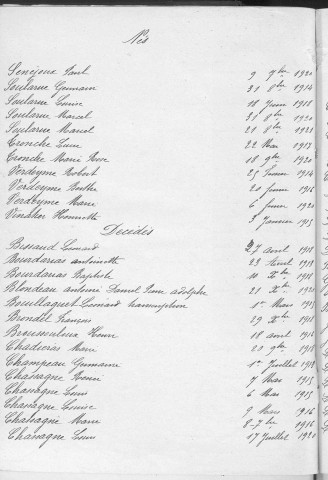 Nés
Senejoux Paul 9 9bre 1920
Soularue Germain 31 8bre 1914
Soularue Louise 18 Juin 1918
Soularue Marcel 31 8bre 1920
Soularue Marcel 21 8bre 1921
Tronche 22 Mai 1917
Tronche Marie 18 9bre 1920
Verdeyme Robert 25 Juin 1914
Verdeyme 20 Juin 1916
Verdeyme Marie 6 Juin 1920
Vinatier Henriette 3 Janvier 1915
Décédés
Bessaud Léonard 27 avril 1918
Bourdarias antoinette 23 avril 1918
Bourdarias Baptiste 10 Xbre 1918
Blondeau antoine Daniel Jean adolphe 21 Xbre 1920
Bouillaguet Léonard 1er Mars 1915
Brondel François 29 Xbre 1918
Brousouloux Henri 18 avril 1916
Chadirat Marie 20 9bre 1918
Champeau Germaine 1er Juillet 1918
Chassagne Henri 7 Mai 1915
Chassagne Louis 6 Mai 1915
Chassagne Louise 9 Mars 1916
Chassagne Marie 8 7bre 1916
Chassagne Louis 17 Juillet 1920